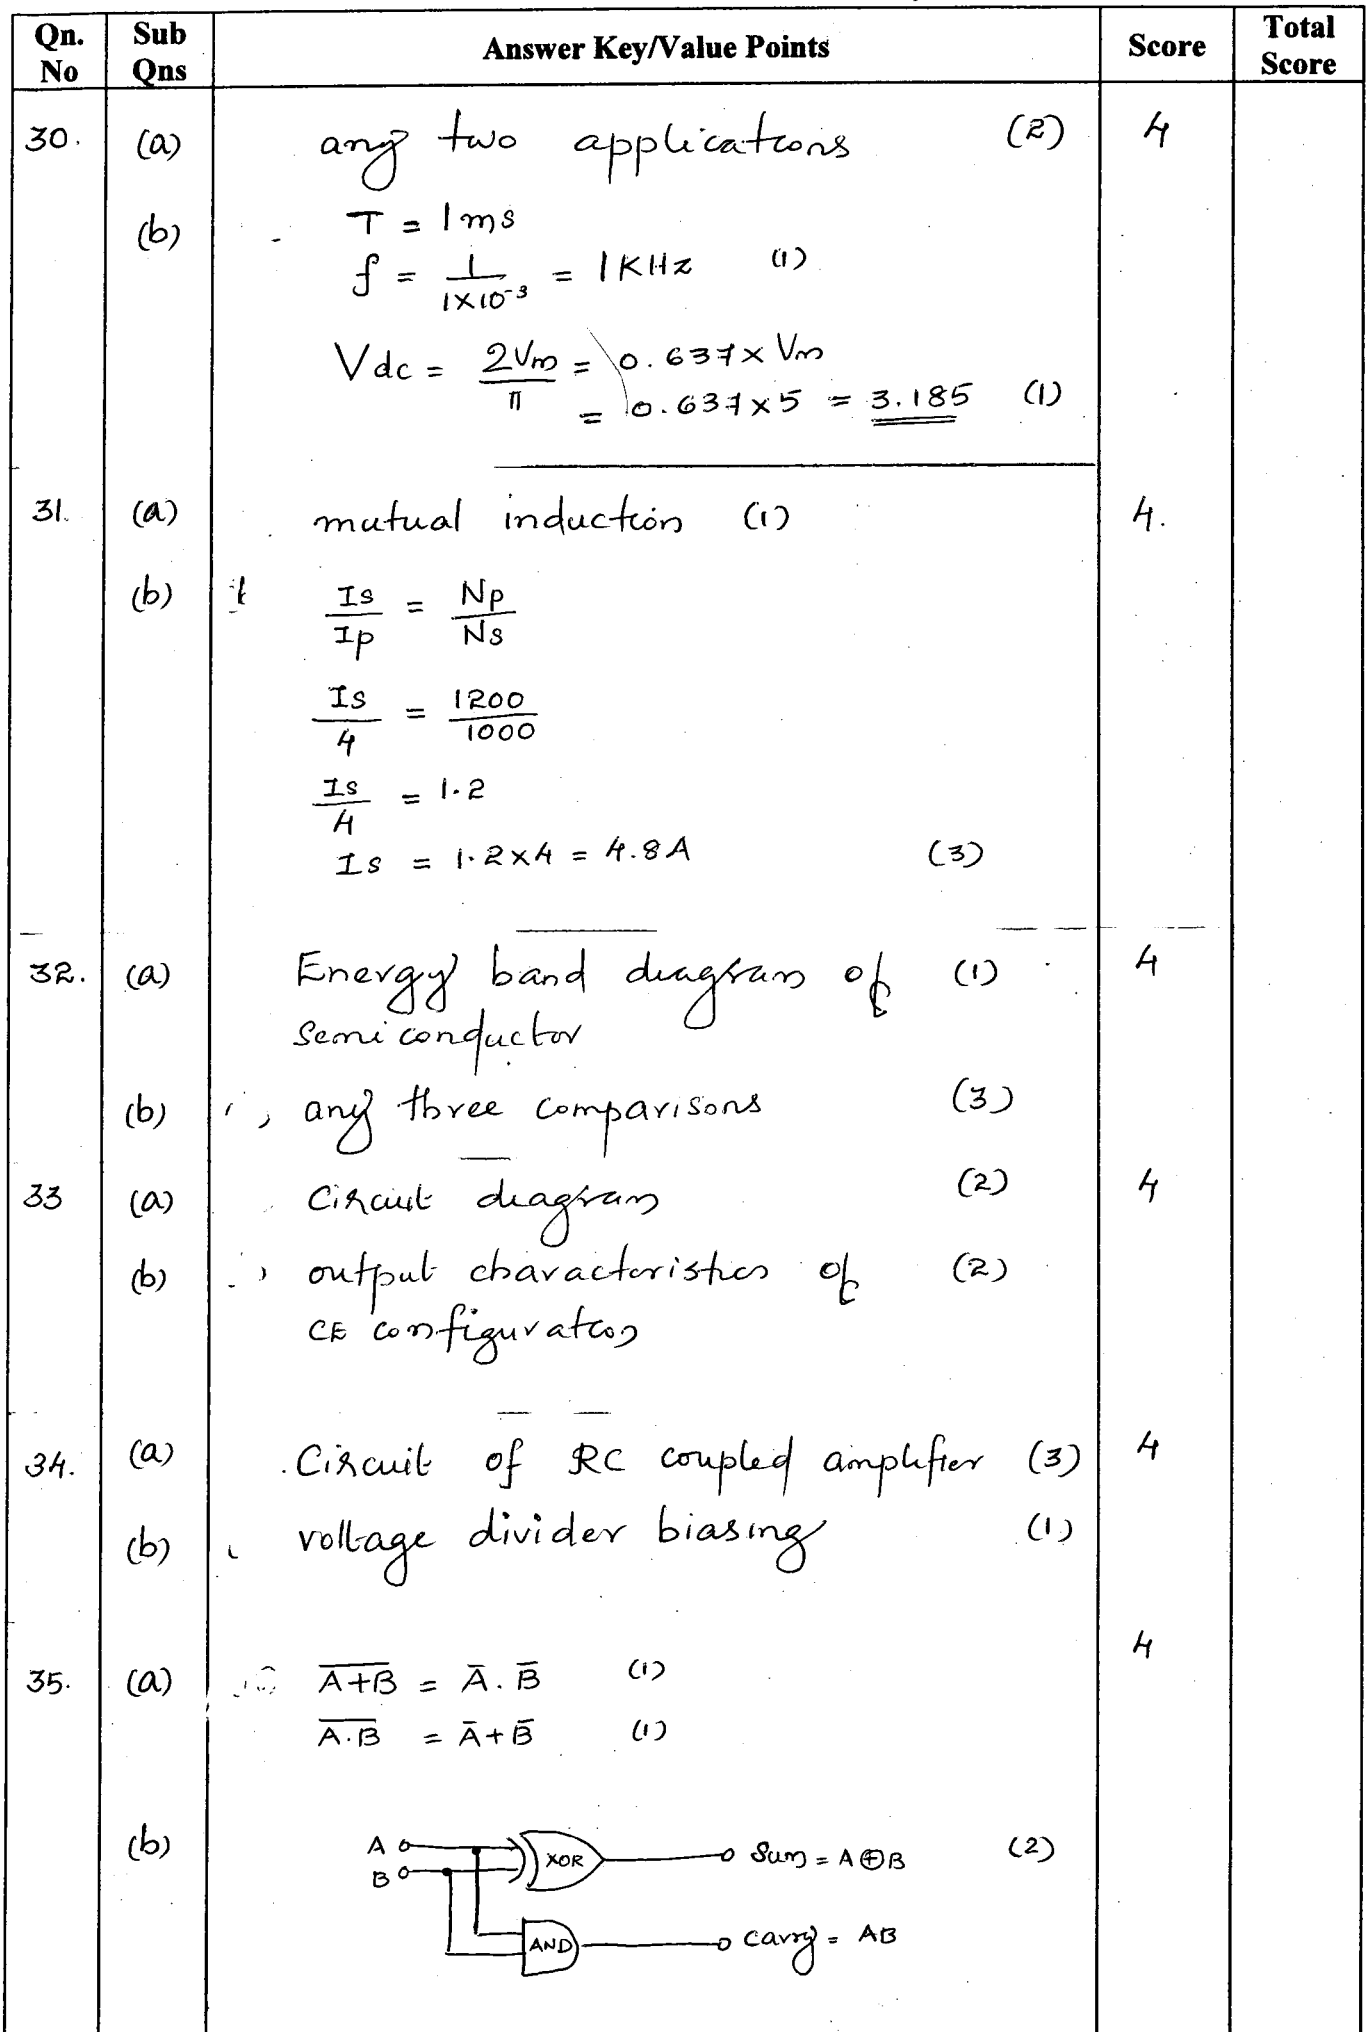 Qn. No | Sub Qns | Answer Key/Value Points | Score | Total Score
30. (a) any two applications (2) 4
(b) T = 1ms
f = 1/1×10⁻³ = 1KHz (1)
Vdc = 2Vm/π = 0.637× Vm
= 0.637×5 = 3.185 (1)
31. (a) mutual induction (1) 4.
(b) Is/Ip = Np/Ns
Is/4 = 1200/1000
Is/4 = 1.2
Is = 1.2×4 = 4.8A (3)
32. (a) Energy band diagram of (1) 4
Semi conductor
(b) any three comparisons (3)
33 (a) Circuit diagram (2) 4
(b) output characteristics of (2)
CE configuration
34. (a) Circuit of RC coupled amplifier (3) 4
(b) voltage divider biasing (1)
4
35. (a) A̅+̅B̅ = A̅.B̅ (1)
A̅.̅B̅ = A̅+B̅ (1)
(b) A XOR Sum = A⊕B (2)
B
AND Carry = AB